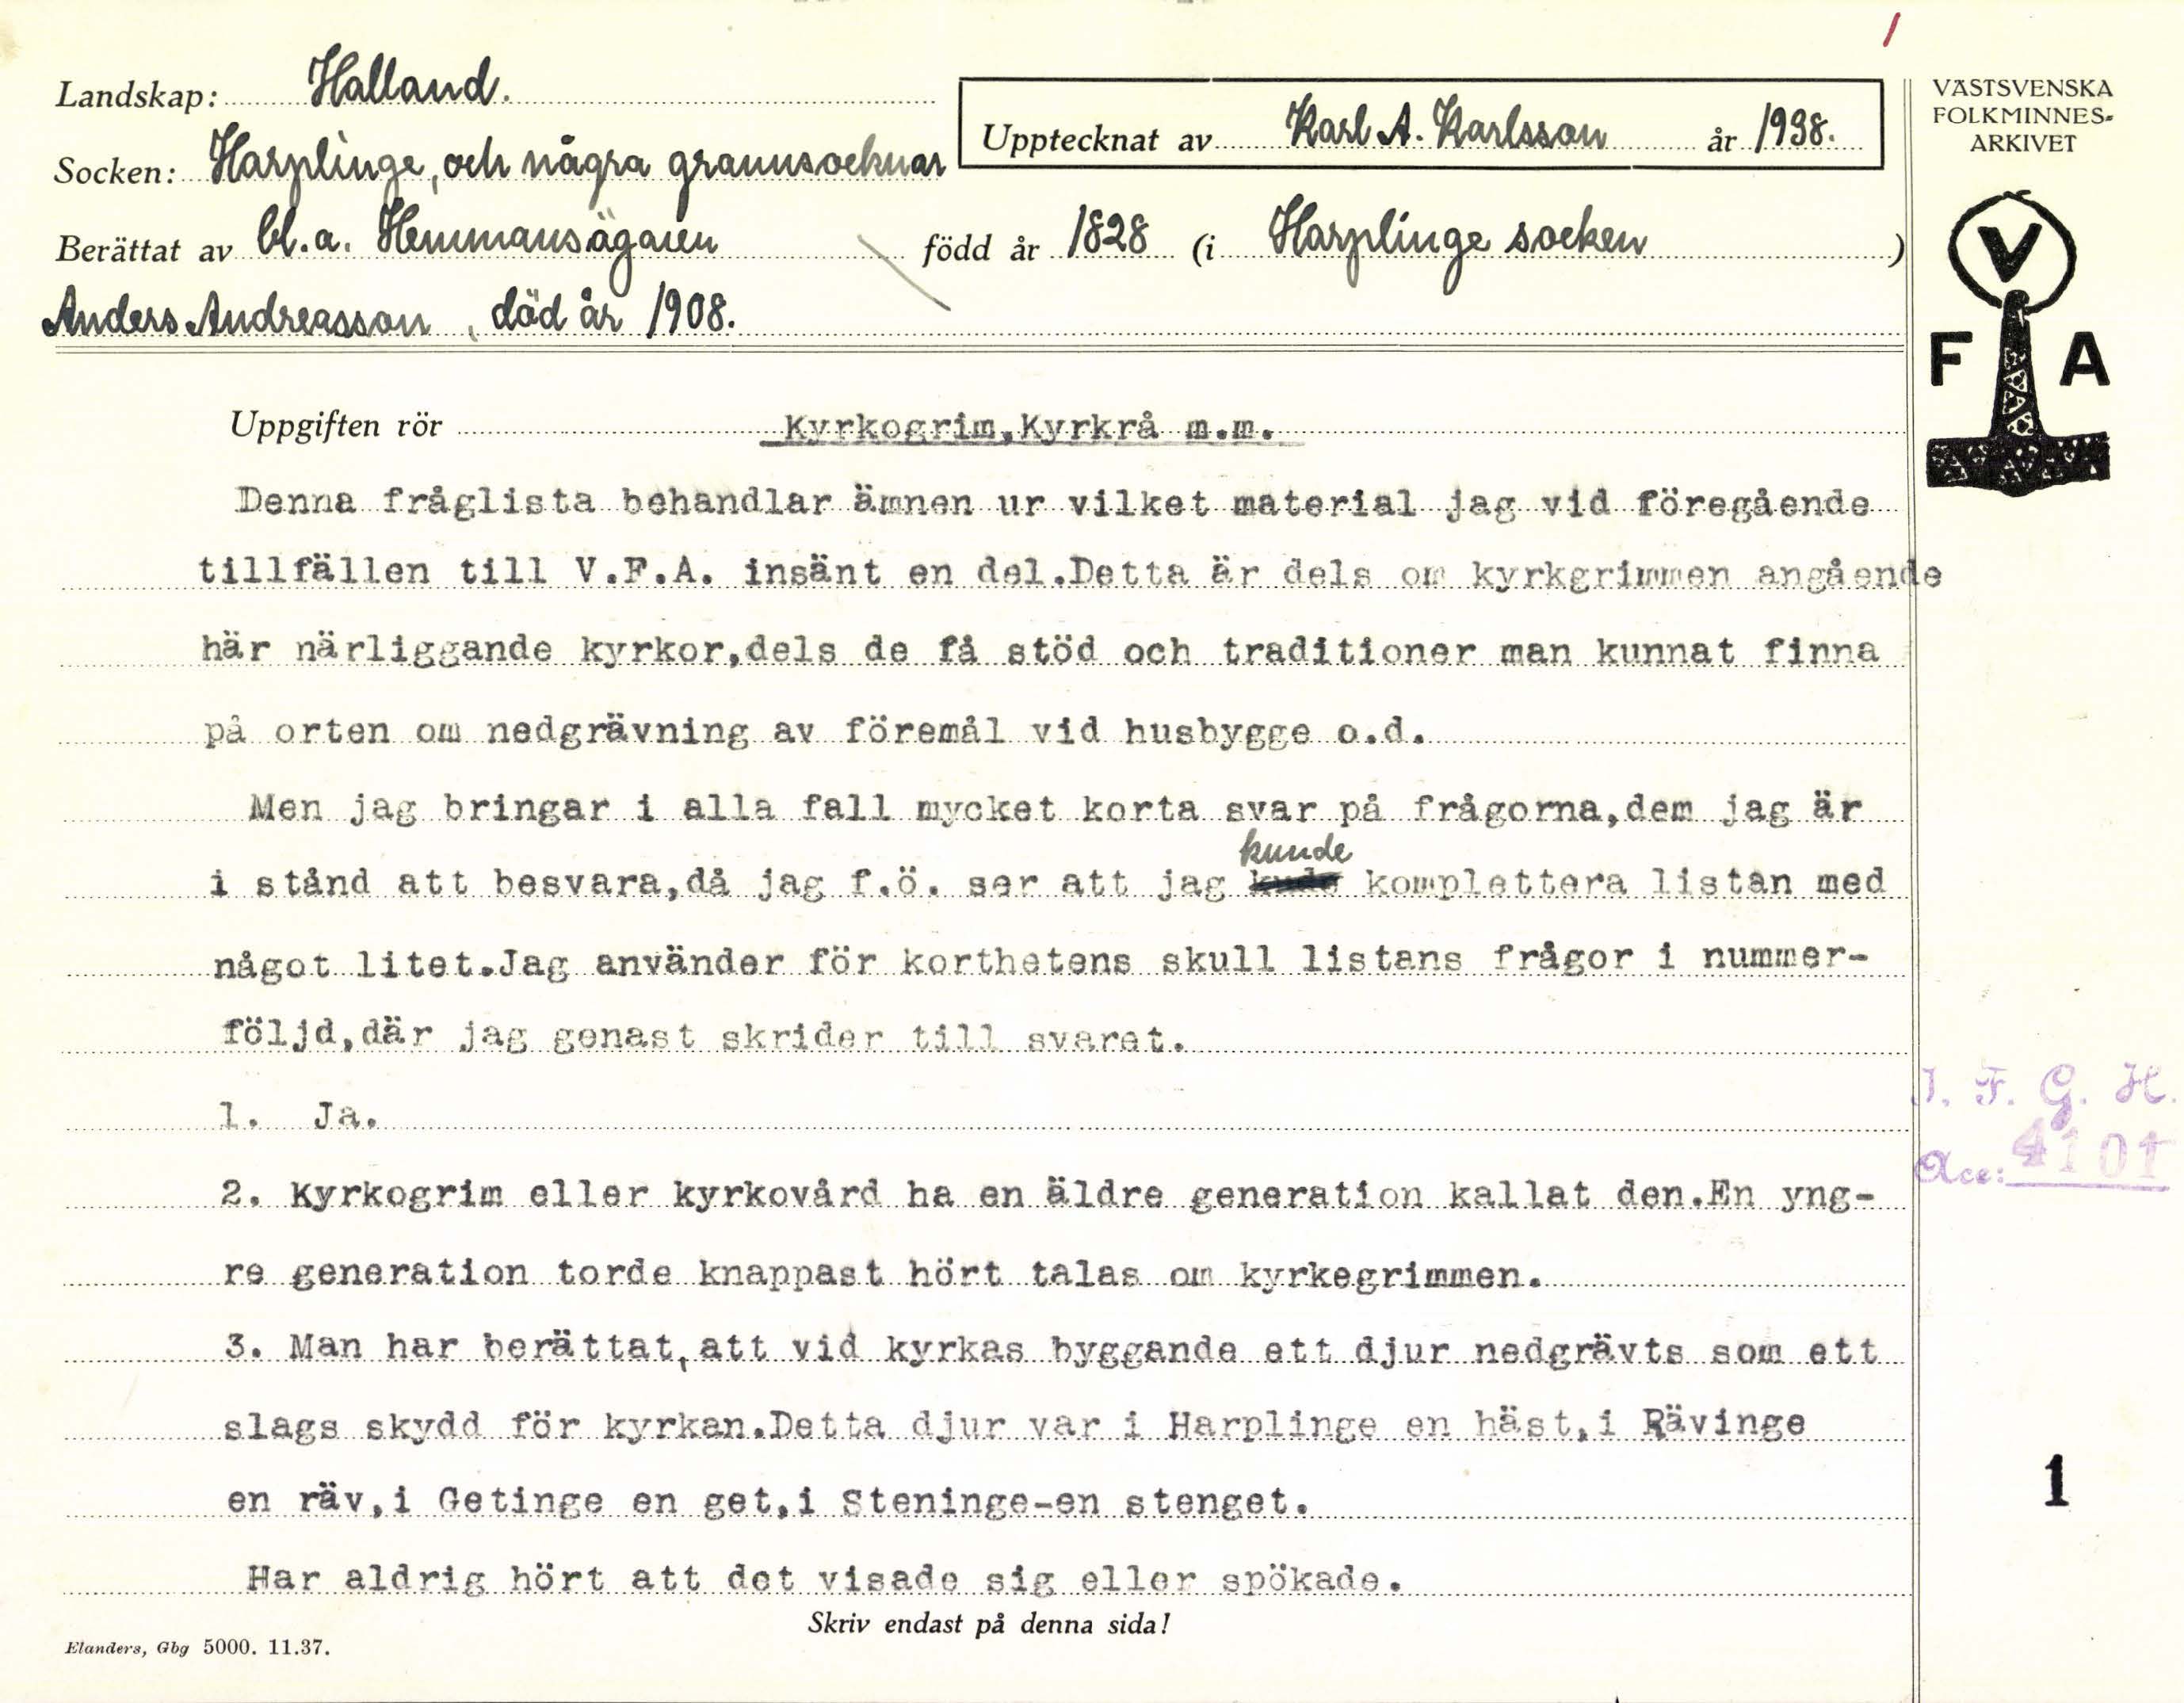 1
Landskap: Halland.
Upptecknat av Karl A. Karlsson år 1938.
Socken: Harplinge, och några grannsocknar
Berättat av bl.a. Hemmansägaren född år 1828 (i Harplinge socken)
Anders Andreasson, död år 1908.
VÄSTSVENSKA
FOLKMINNES-
ARKIVET
V
F A
Uppgiften rör Kyrkogrim,Kyrkrå m.m.
Denna fråglista behandlar ämnen ur vilket material jag vid föregående
tillfällen till V.F.A. insänt en del.Detta är dels om kyrkgrimmen angående
här närliggande kyrkor,dels de få stöd och traditioner man kunnat finna
på orten om nedgrävning av föremål vid husbygge o.d.
Men jag bringar i alla fall mycket korta svar på frågorna,dem jag är
i stånd att besvara,då jag f.ö. ser att jag kunde komplettera listan med
något litet.Jag använder för korthetens skull listans frågor i nummer-
följd,där jag genast skrider till svaret.
1. Ja.
2. Kyrkogrim eller kyrkovård ha en äldre generation kallat den.En yng-
re generation torde knappast hört talas om kyrkegrimmen.
3. Man har berättat, att vid kyrkas byggande ett djur nedgrävts som ett
slags skydd för kyrkan.Detta djur var i Harplinge en häst,i Rävinge
en räv,i Getinge en get,i Steninge-en stenget.
Har aldrig hört att det visade sig eller spökade.
Skriv endast på denna sida!
Elanders, Gbg 5000. 11.37.
I. F. G. H.
Acc: 4101
1